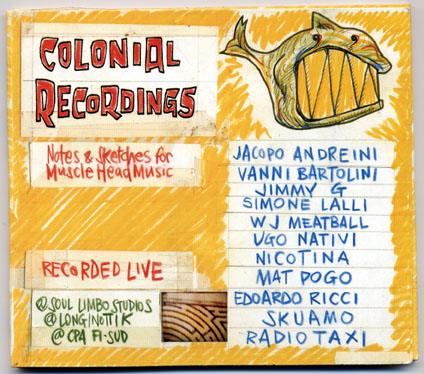 COLONIAL
RECORDINGS
Notes & Sketches for
Muscle Head Music
RECORDED LIVE
@ SOUL LIMBO STUDIOS
@ LONGINOTTIK
@ CPA FI-SUD
JACOPO ANDREINI
VANNI BARTOLINI
JIMMY G
SIMONE LALLI
WJ MEATBALL
UGO NATIVI
NICOTINA
MAT POGO
EDOARDO RICCI
SKUAMO
RADIO TAXI